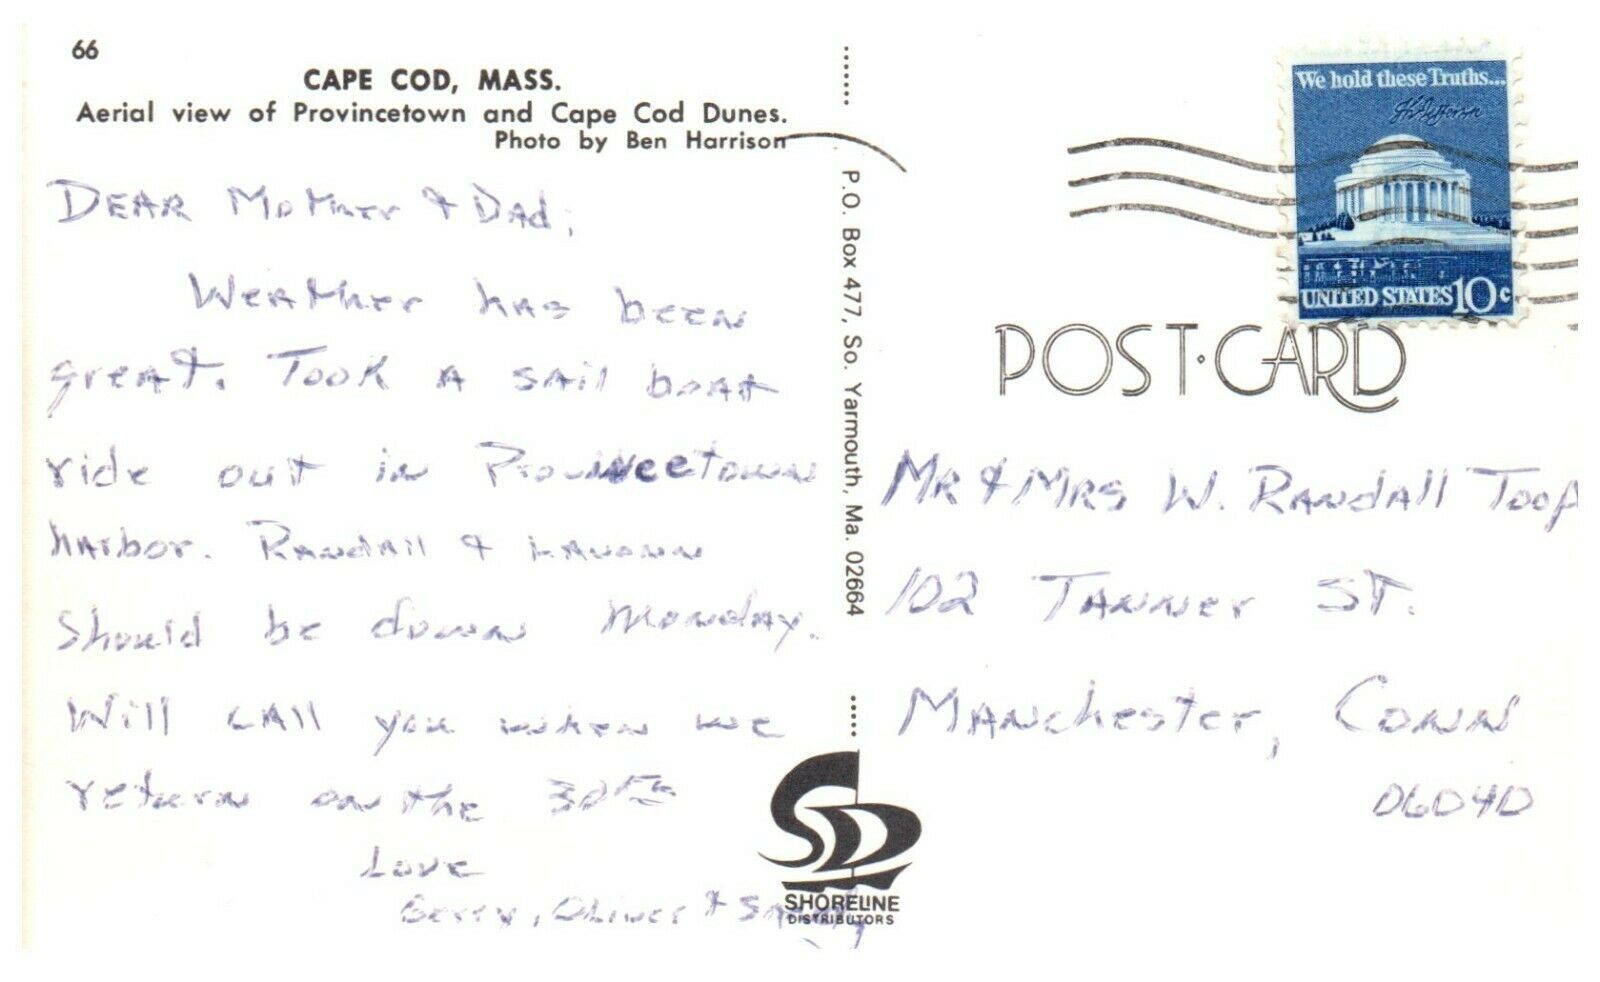 66
CAPE COD, MASS.
Aerial view of Provincetown and Cape Cod Dunes.
Photo by Ben Harrison
DEAR Mother & Dad,
Weather has been
great. Took a sail boat
ride out in Provincetown
harbor. Randall &
should be down Monday.
Will call you when we
return on the 30th
Love
Gerry, Oliver &
P.O. Box 477, So. Yarmouth, Ma. 02664
SHORELINE
DISTRIBUTORS
We hold these Truths...
Th Jefferson
UNITED STATES 10c
POST·CARD
Mr & Mrs W. Randall Toop
102 Tanner St.
Manchester, Conn
06040